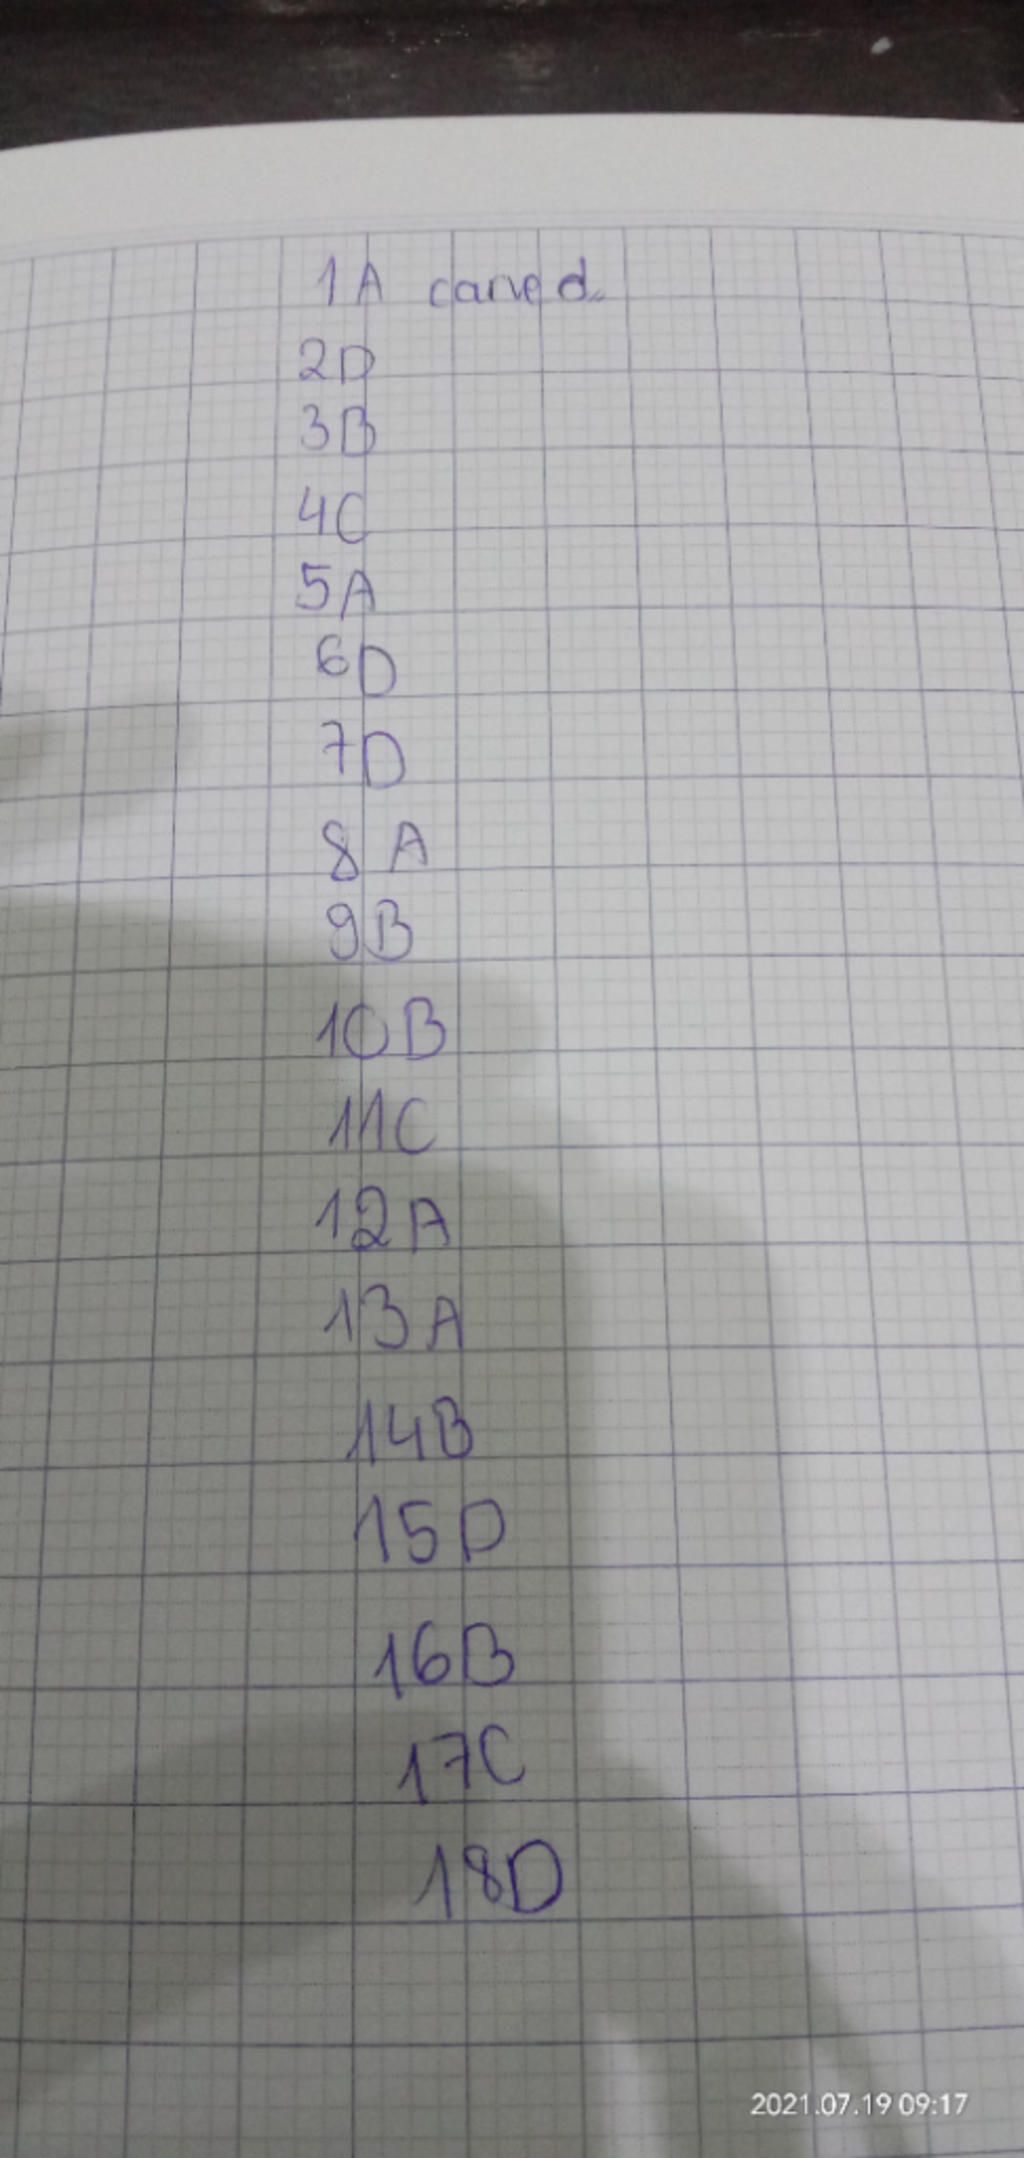 1A carved
2D
3B
4C
5A
6D
7D
8 A
9B
10B
11C
12A
13A
14B
15D
16B
17C
18D
2021.07.19 09:17